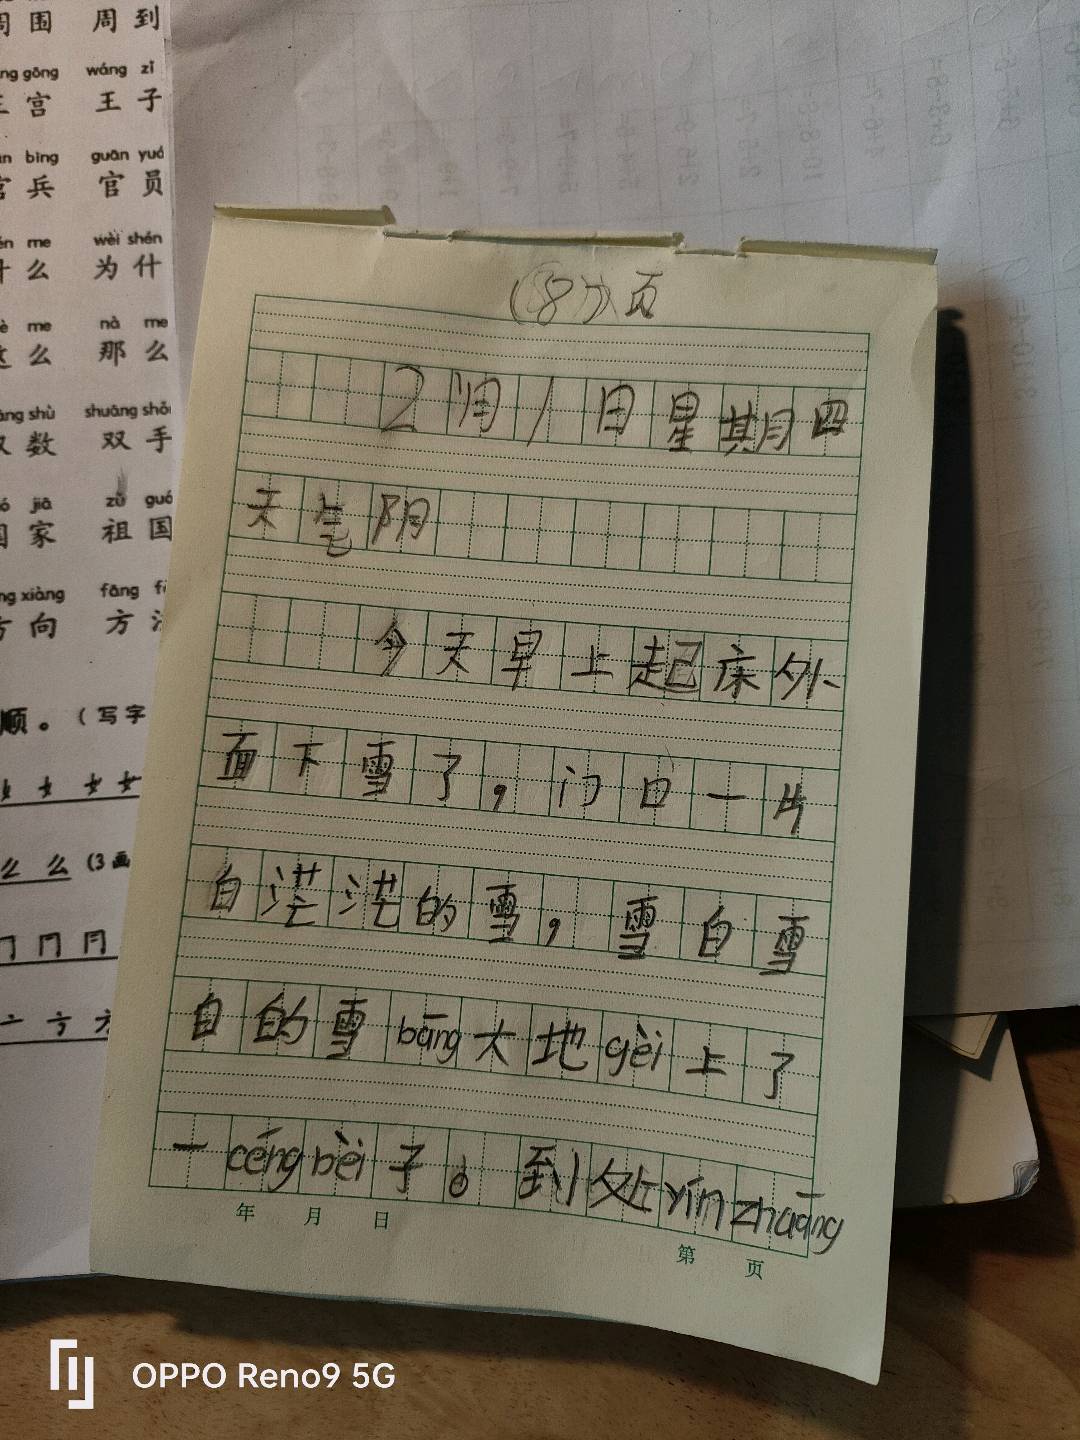 周围 周到
gōng wáng zǐ
王宫 王子
bīng guān yuá
官兵 官员
me wèi shén
什么 为什
me nà me
这么 那么
shù shuāng shǒ
双数 双手
jiā zǔ guó
国家 祖国
xiàng fāng
方向 方
顺。(写字
么 么 (3画
(87)页
2月1日星期四
天气阴
今天早上起床外
面下雪了，门口一片
白茫茫的雪，雪白雪
白的雪bāng大地gèi上了
一céngbèi子。到处yínzhuāng
年 月 日
第 页
OPPO Reno9 5G